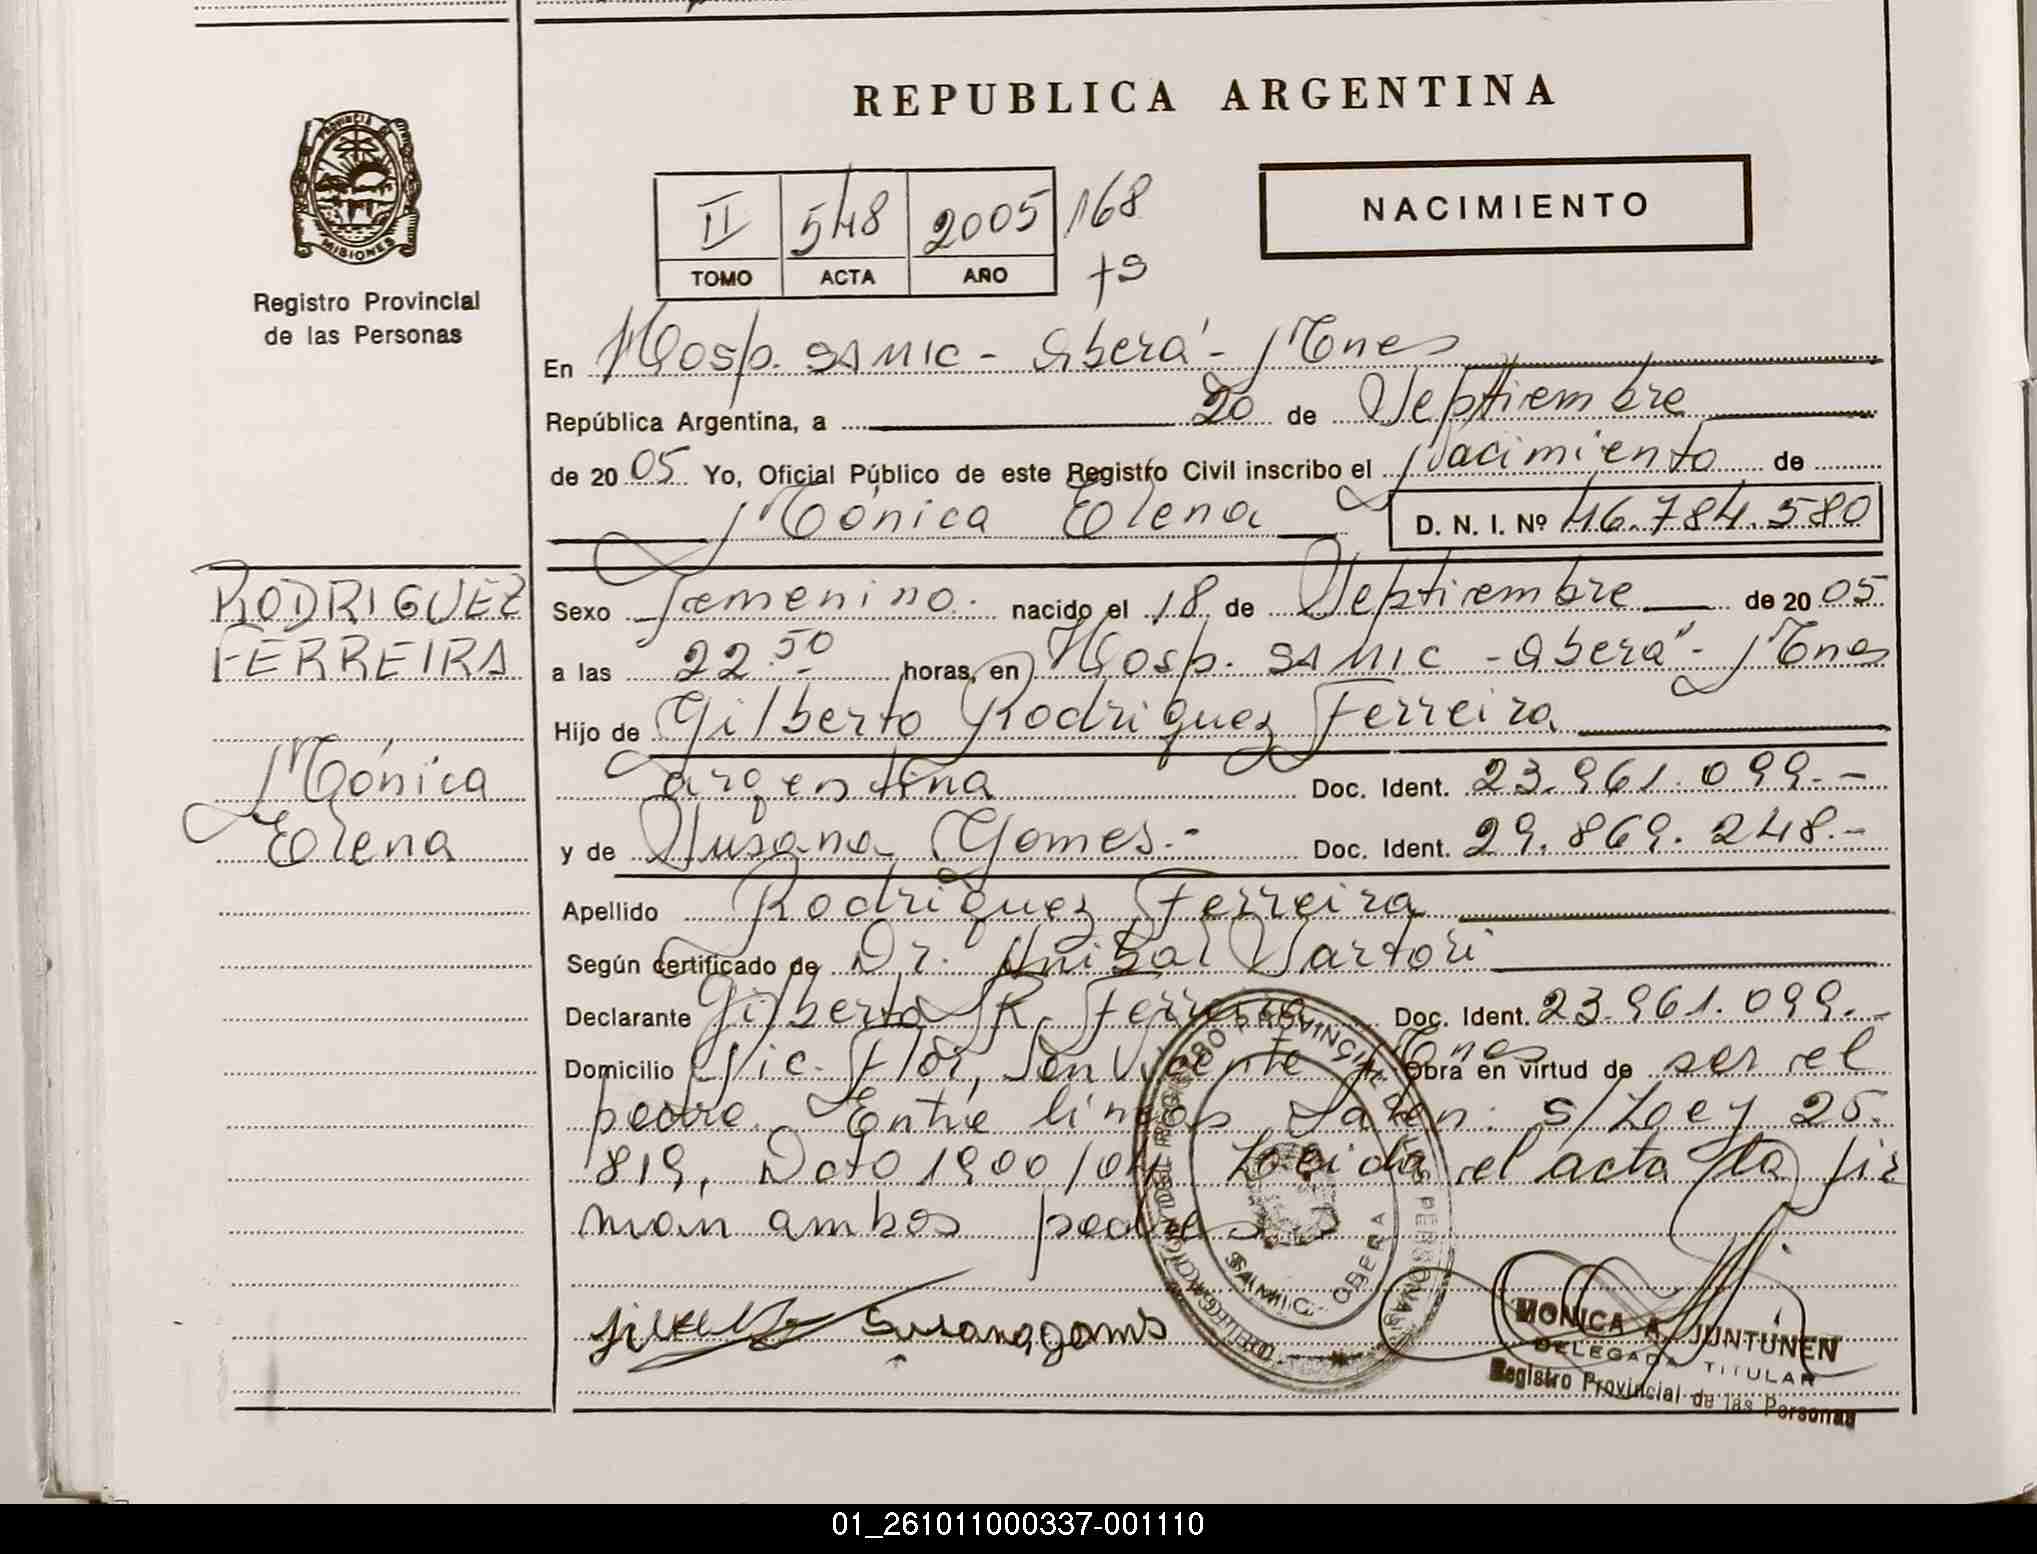 REPUBLICA ARGENTINA
PROVINCIA DE
MISIONES
Registro Provincial
de las Personas
II 548 2005 168
TOMO ACTA AÑO
NACIMIENTO
En Hosp. SAMIC - Oberá - Mnes
República Argentina, a 20 de Septiembre
de 2005 Yo, Oficial Público de este Registro Civil inscribo el Nacimiento de
Mónica Elena D. N. I. Nº 46.784.580
RODRIGUEZ
FERREIRA
Mónica
Elena
Sexo Femenino. nacido el 18 de Septiembre de 2005
a las 22.50 horas, en Hosp. SAMIC - Oberá - Mnes
Hijo de Gilberto Rodriguez Ferreira
argentina Doc. Ident. 23.961.099.-
y de Susana Gomes.- Doc. Ident. 29.869.248.-
Apellido Rodriguez Ferreira
Según certificado de Dr. Anibal Sartori
Declarante Gilberto R. Ferreira Doc. Ident. 23.961.099.-
Domicilio Pic. Flor, San Vicente Mnes Obra en virtud de ser el
padre. Entre lineas Valen: s/Ley 25.
819, Dcto 1900/04 Leida el acta la fir
man ambos padres
Susana gomes
SAMIC - OBERA
MONICA A. JUNTUNEN
DELEGADA TITULAR
Registro Provincial de las Personas
01_261011000337-001110